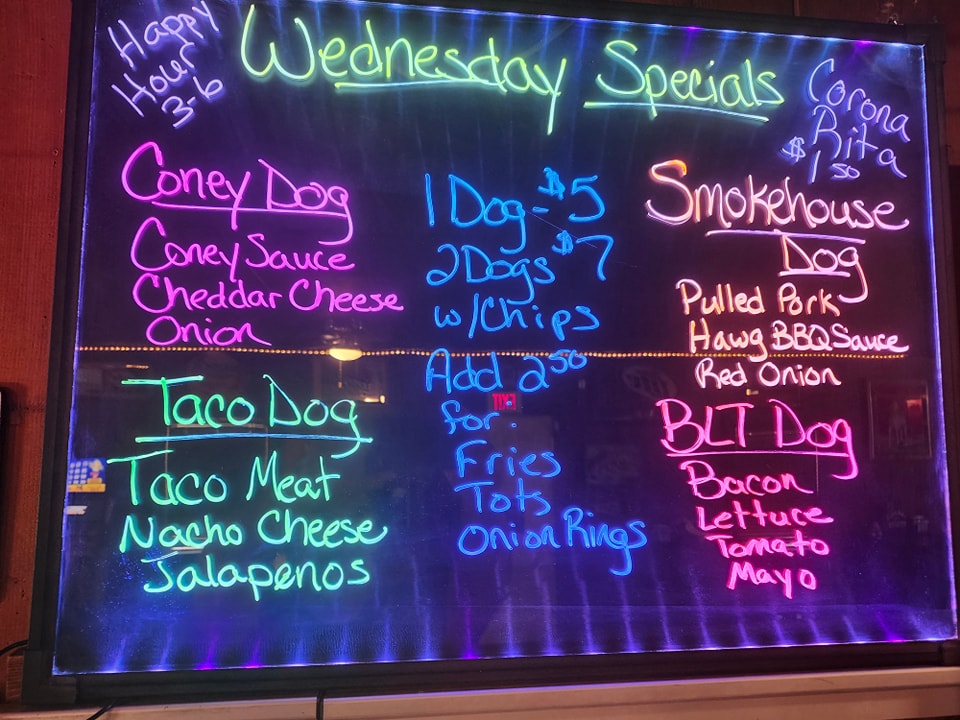 Happy
Hour
3-6
Wednesday Specials
Corona
Rita
$1 50
Coney Dog
Coney Sauce
Cheddar Cheese
Onion
Taco Dog
Taco Meat
Nacho Cheese
Jalapenos
1 Dog - $5
2 Dogs $7
w/Chips
Add 2 50
for:
Fries
Tots
Onion Rings
Smokehouse
Dog
Pulled Pork
Hawg BBQ Sauce
Red Onion
BLT Dog
Bacon
Lettuce
Tomato
Mayo